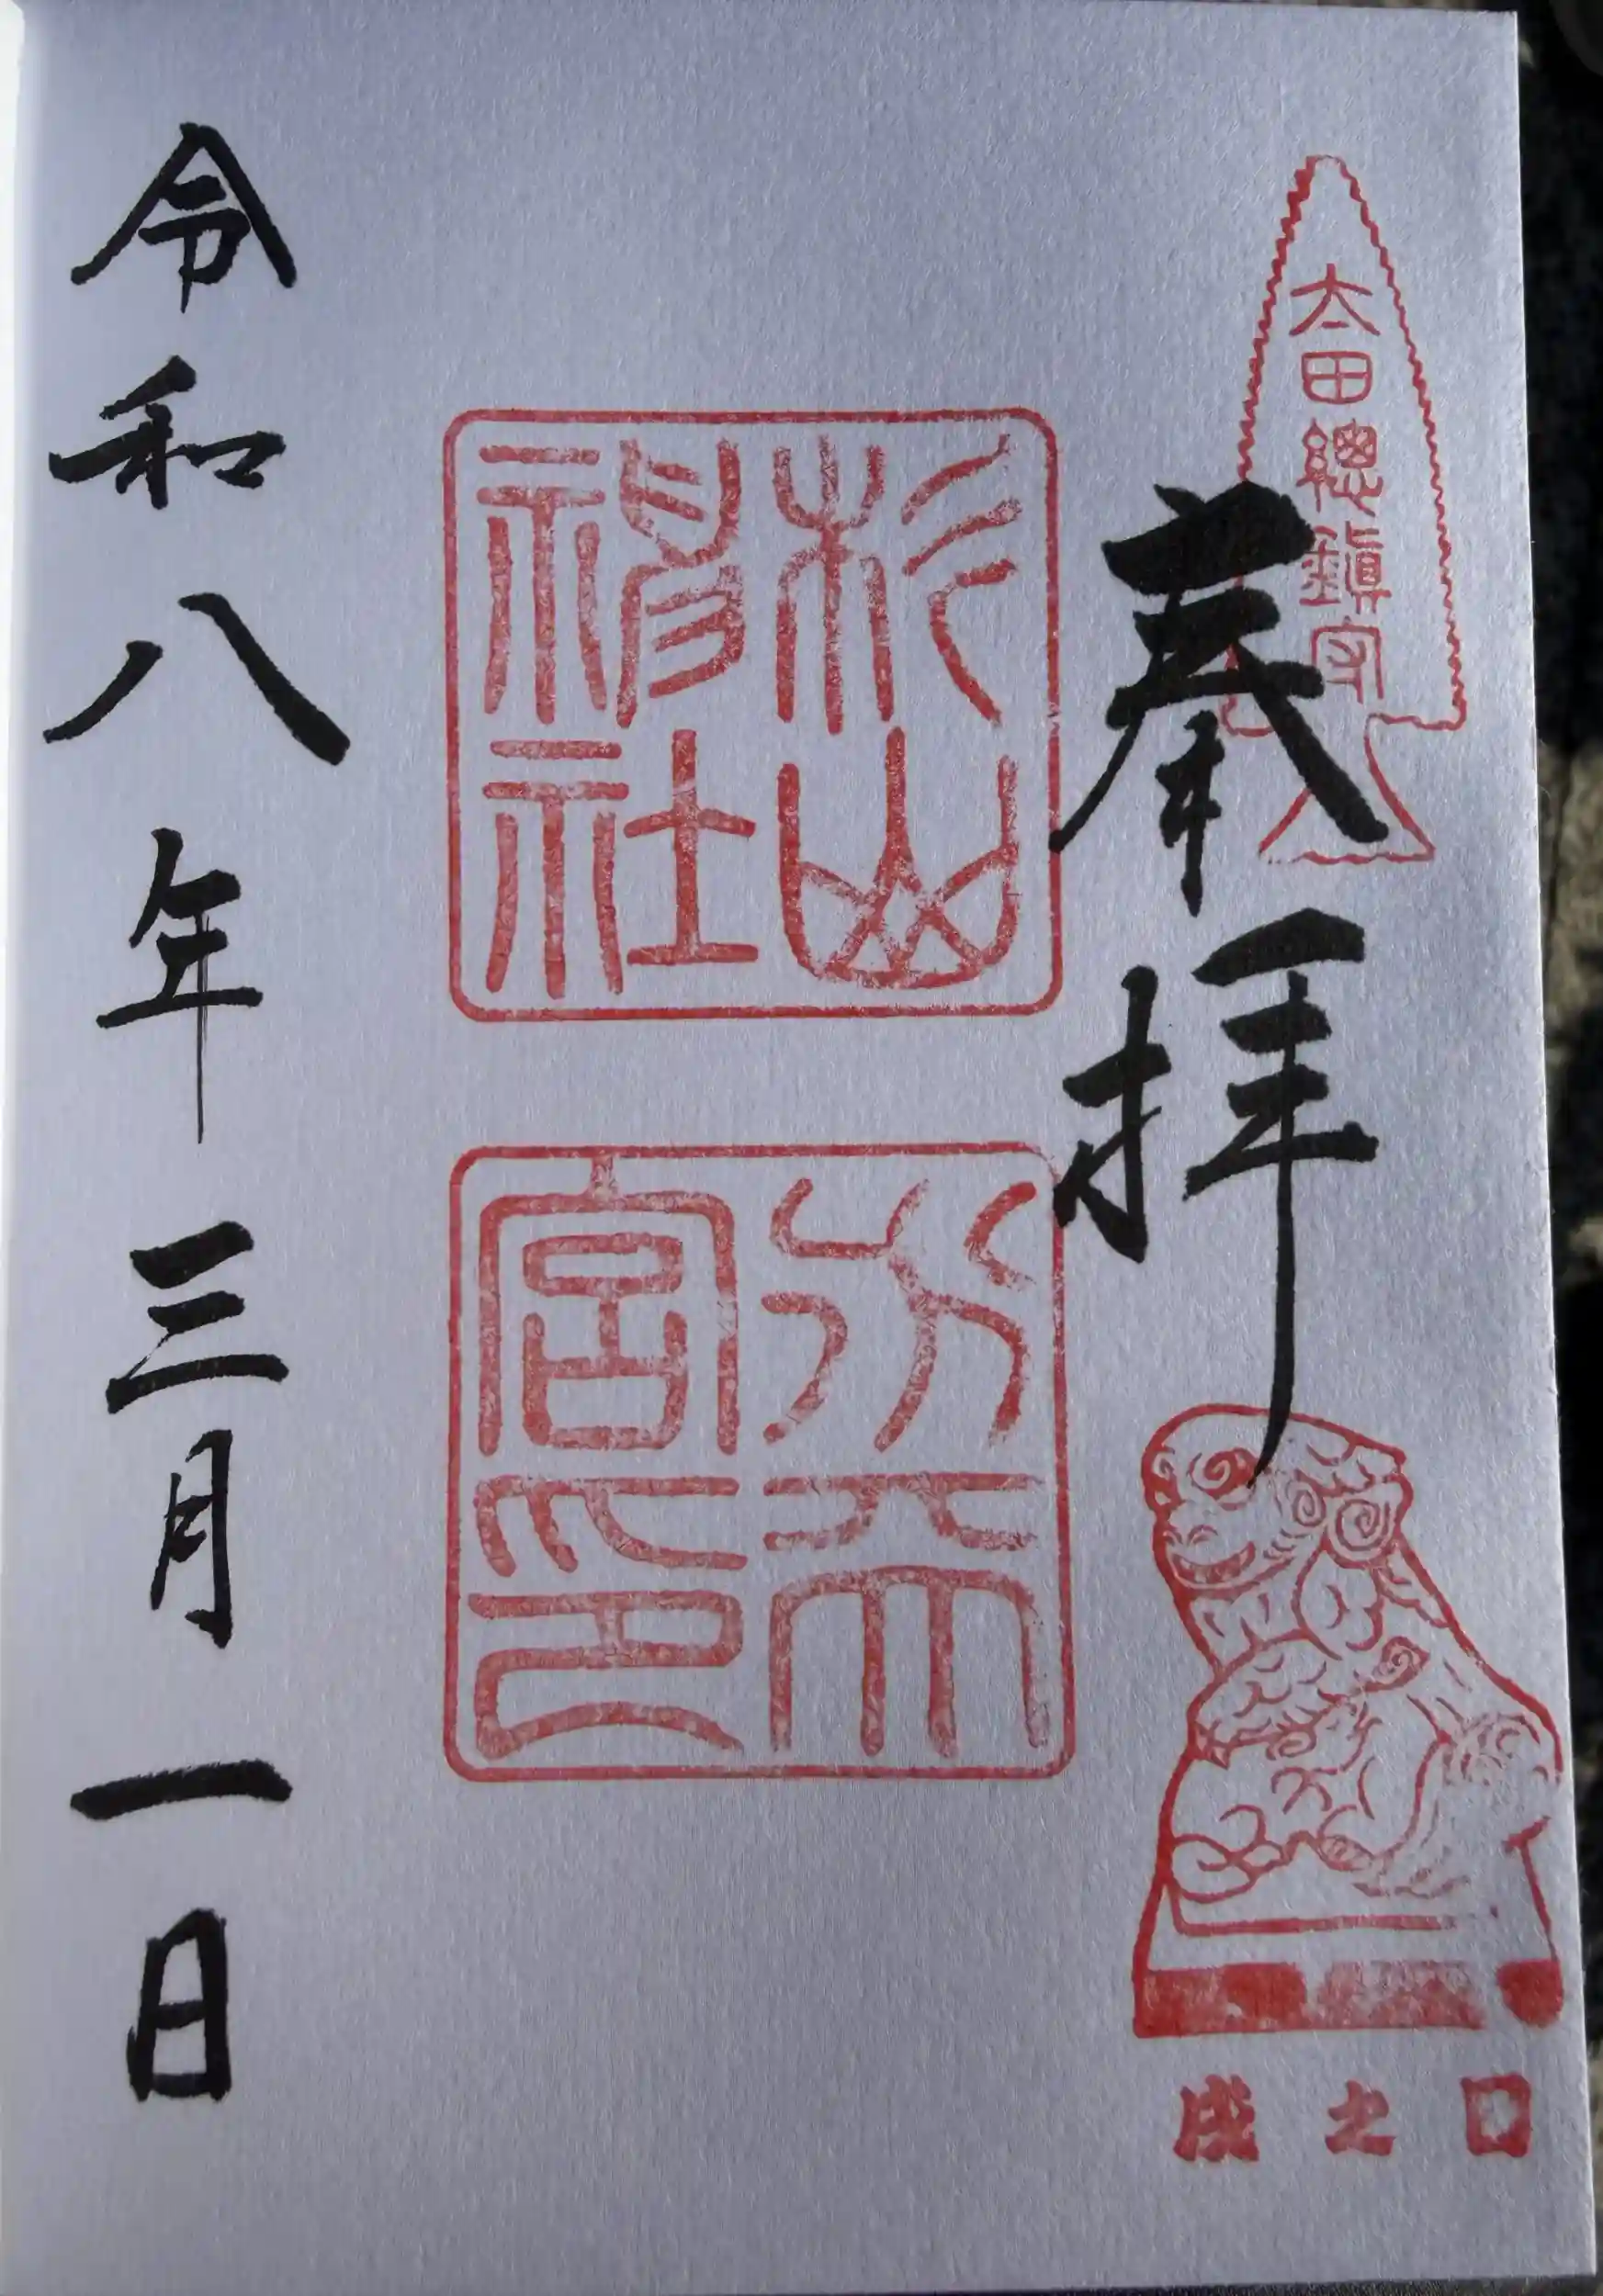 太田總鎮守
奉拝
戌之日
杉山
神社
水天
宮印
令和八年三月一日